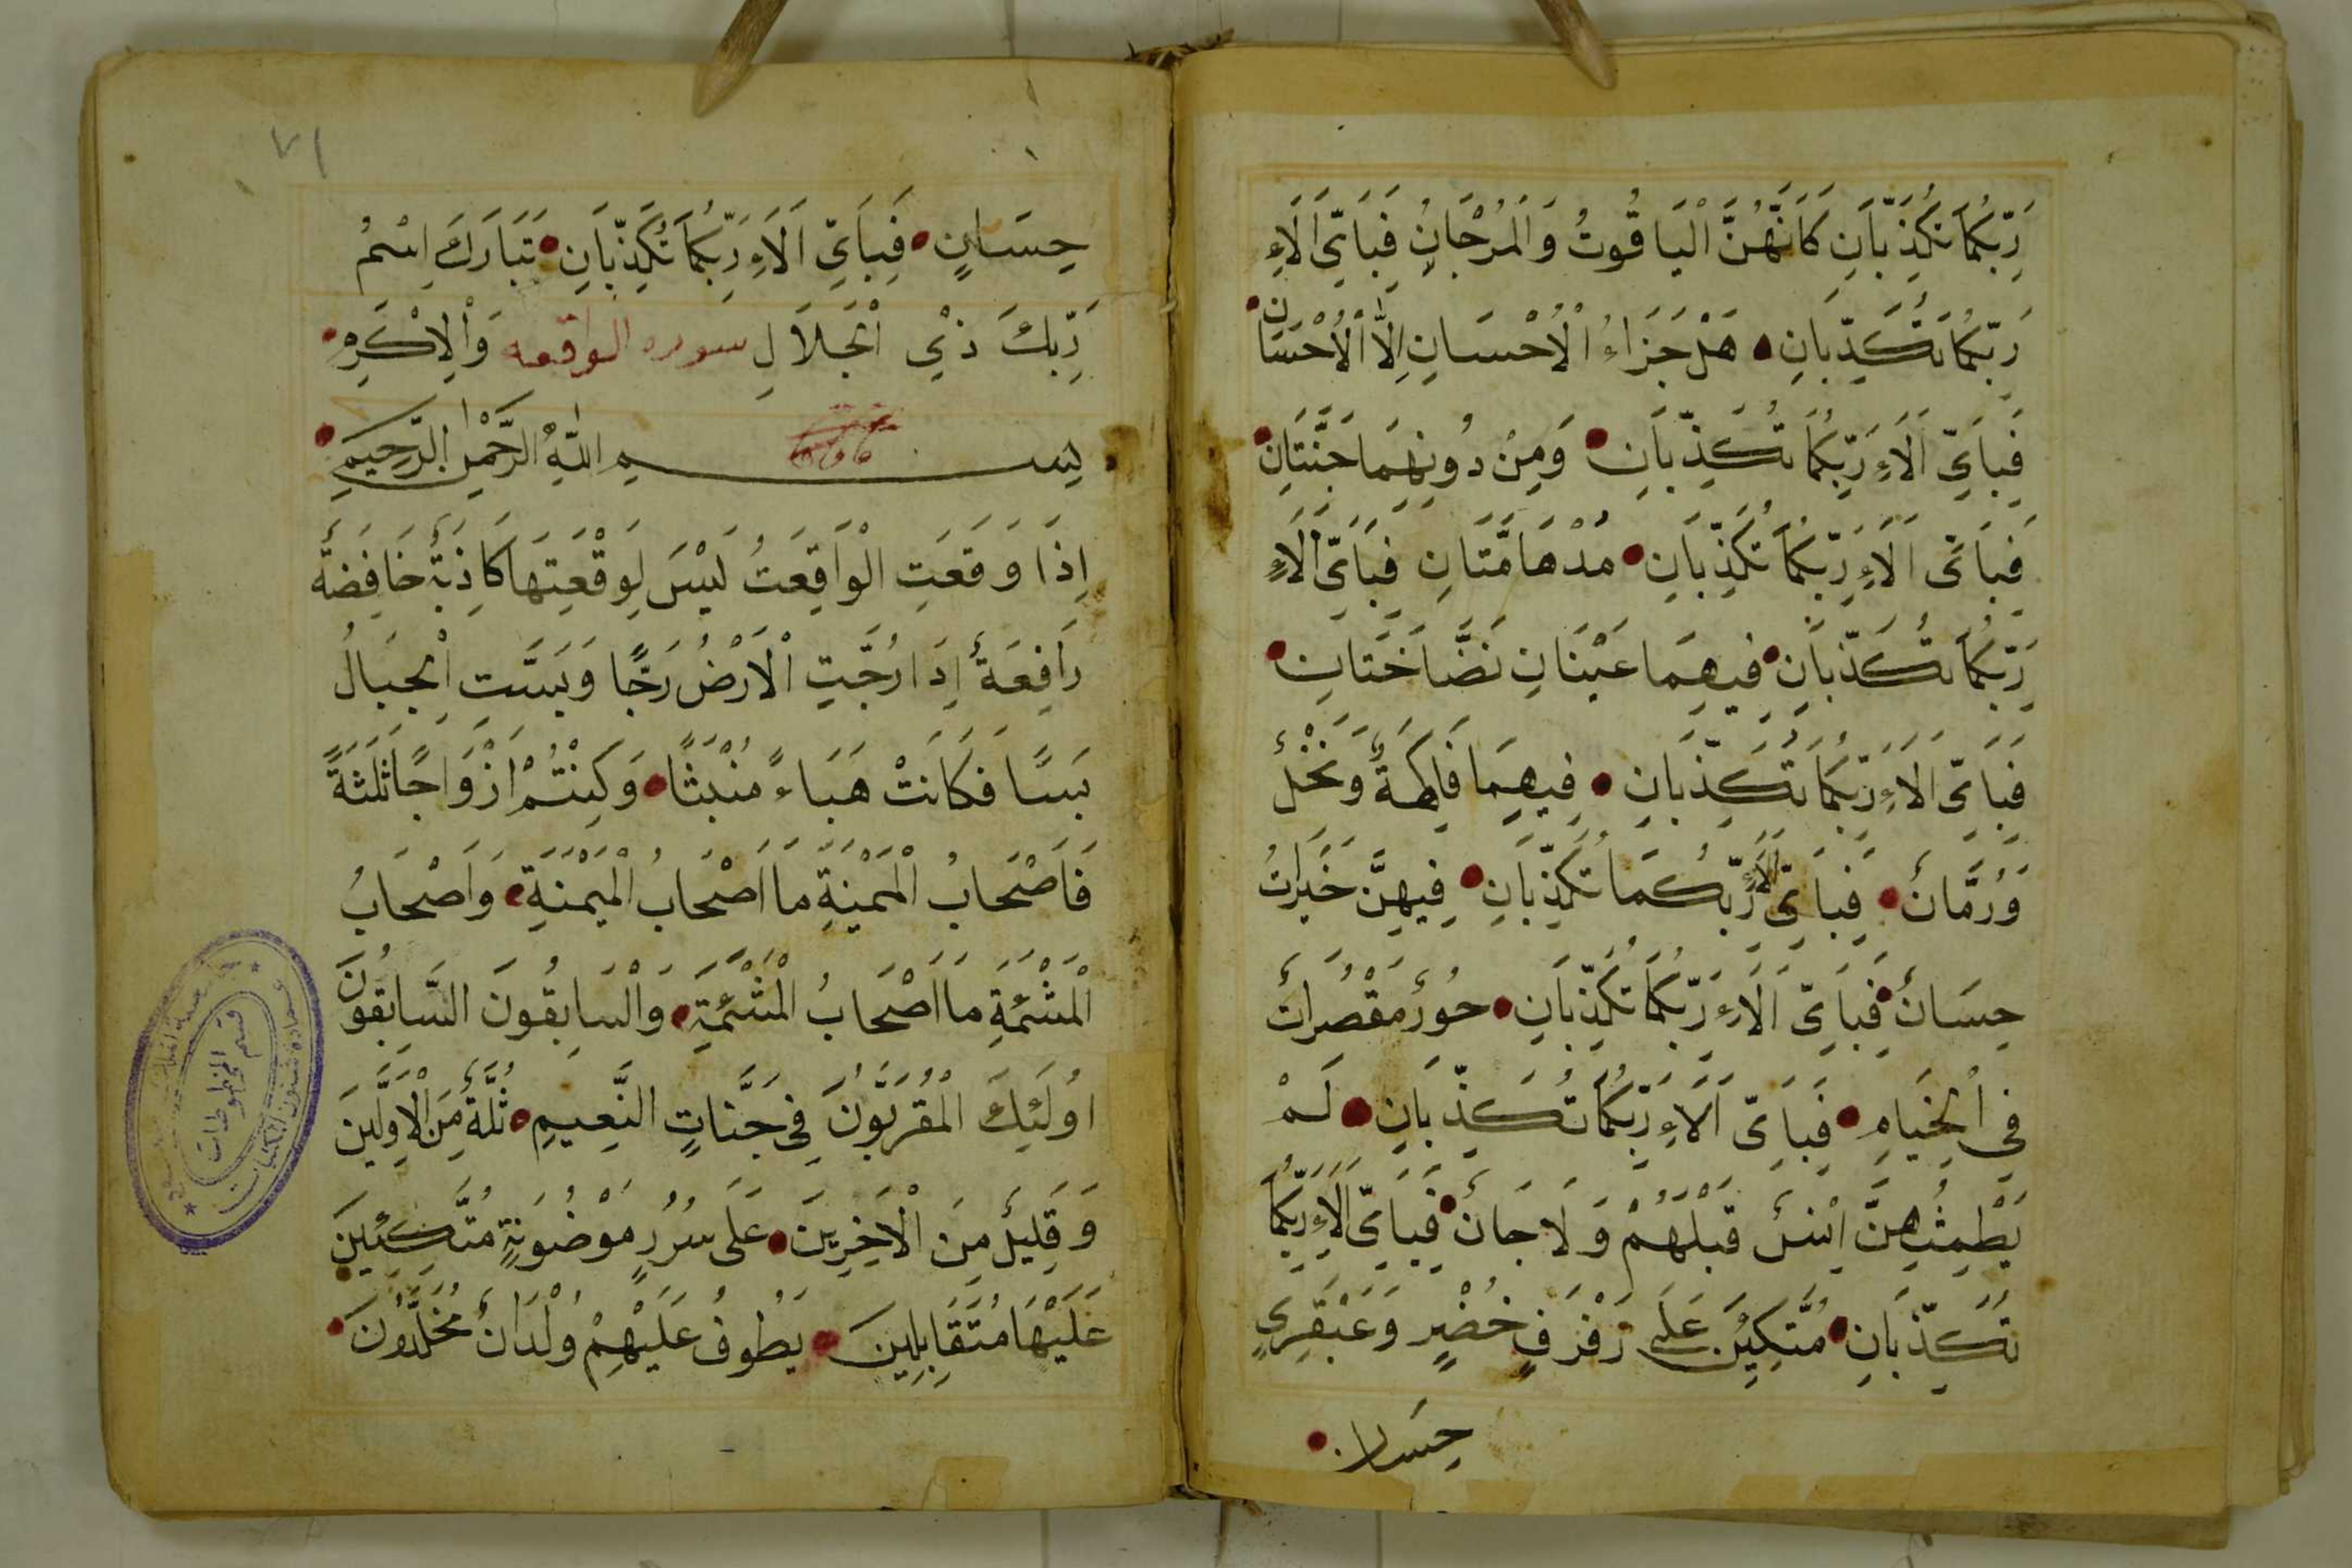 رَبِّكُمَا تُكَذِّبَانِ كَاَنَّهُنَّ الْيَاقُوتُ وَالْمَرْجَانُ فَبِاَيِّ اَلَاءِ
رَبِّكُمَا تُكَذِّبَانِ هَلْ جَزَاءُ الْاِحْسَانِ اِلَّا الْاِحْسَانُ
فَبِاَيِّ اَلَاءِ رَبِّكُمَا تُكَذِّبَانِ وَمِنْ دُونِهِمَا جَنَّتَانِ
فَبِاَيِّ اَلَاءِ رَبِّكُمَا تُكَذِّبَانِ مُدْهَامَّتَانِ فَبِاَيِّ اَلَاءِ
رَبِّكُمَا تُكَذِّبَانِ فِيهِمَا عَيْنَانِ نَضَّاخَتَانِ
فَبِاَيِّ اَلَاءِ رَبِّكُمَا تُكَذِّبَانِ فِيهِمَا فَاكِهَةٌ وَنَخْلٌ
وَرُمَّانٌ فَبِاَيِّ اَلَاءِ رَبِّكُمَا تُكَذِّبَانِ فِيهِنَّ خَيْرَاتٌ
حِسَانٌ فَبِاَيِّ اَلَاءِ رَبِّكُمَا تُكَذِّبَانِ حُورٌ مَقْصُرَاتٌ
فِي الْخِيَامِ فَبِاَيِّ اَلَاءِ رَبِّكُمَا تُكَذِّبَانِ لَمْ
يَطْمِثْهُنَّ اِنْسٌ قَبْلَهُمْ وَلَا جَانٌّ فَبِاَيِّ اَلَاءِ رَبِّكُمَا
تُكَذِّبَانِ مُتَّكِئِينَ عَلَى رَفْرَفٍ خُضْرٍ وَعَبْقَرِيٍ
حِسَان
٧١
حِسَانٍ فَبِاَيِّ اَلَاءِ رَبِّكُمَا تُكَذِّبَانِ تَبَارَكَ اسْمُ
رَبِّكَ ذِي الْجَلَالِ سوره الواقعه وَالْاِكْرَمِ
بِسْمِ اللّٰهِ الرَّحْمٰنِ الرَّحِيمِ
اِذَا وَقَعَتِ الْوَاقِعَتُ لَيْسَ لِوَقْعَتِهَا كَاذِبَةٌ خَافِضَةٌ
رَافِعَةٌ اِذَا رُجَّتِ الْاَرْضُ رَجًّا وَبُسَّتِ الْجِبَالُ
بَسًّا فَكَانَتْ هَبَاءً مُنْبَثًّا وَكُنْتُمْ اَزْوَاجًا ثَلٰثَةً
فَاَصْحَابُ الْمَيْمَنَةِ مَا اَصْحَابُ الْمَيْمَنَةِ وَاَصْحَابُ
الْمَشْئَمَةِ مَا اَصْحَابُ الْمَشْئَمَةِ وَالْسَابِقُونَ السَّابِقُونَ
اُولَئِكَ الْمُقَرَّبُونَ فِي جَنَّاتِ النَّعِيمِ ثُلَّةٌ مِنَ الْاَوَّلِينَ
وَقَلِيلٌ مِنَ الْاَخِرِينَ عَلَى سُرُرٍ مَوْضُونَةٍ مُتَّكِئِينَ
عَلَيْهَا مُتَقَابِلِينَ يَطُوفُ عَلَيْهِمْ وِلْدَانٌ مُخَلَّدُونَ
قسم المخطوطات
عمادة شئون المكتبات